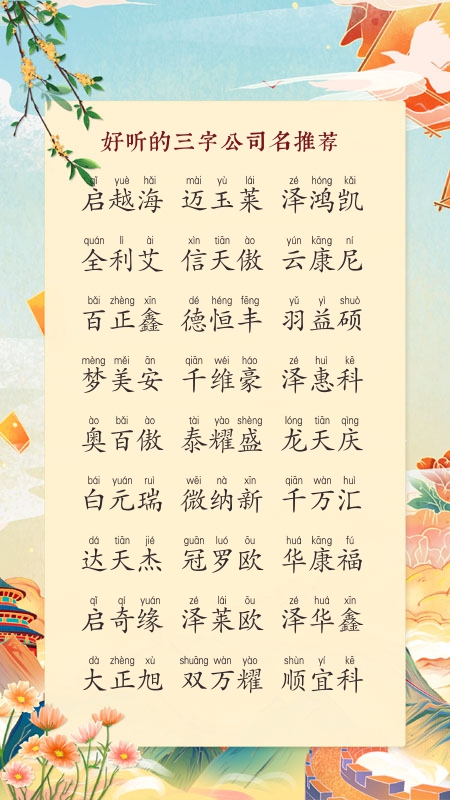 好听的三字公司名推荐
qǐ yuè hǎi mài yù lái zé hóng kǎi
启越海 迈玉莱 泽鸿凯
quán lì ài xìn tiān ào yún kāng ní
全利艾 信天傲 云康尼
bǎi zhèng xīn dé héng fēng yǔ yì shuò
百正鑫 德恒丰 羽益硕
mèng měi ān qiān wéi háo zé huì kē
梦美安 千维豪 泽惠科
ào bǎi ào tài yào shèng lóng tiān qìng
奥百傲 泰耀盛 龙天庆
bái yuán ruì wēi nà xīn qiān wàn huì
白元瑞 微纳新 千万汇
dá tiān jié guān luó ōu huá kāng fú
达天杰 冠罗欧 华康福
qǐ qí yuán zé lái ōu zé huá xīn
启奇缘 泽莱欧 泽华鑫
dà zhèng xù shuāng wàn yào shùn yí kē
大正旭 双万耀 顺宜科